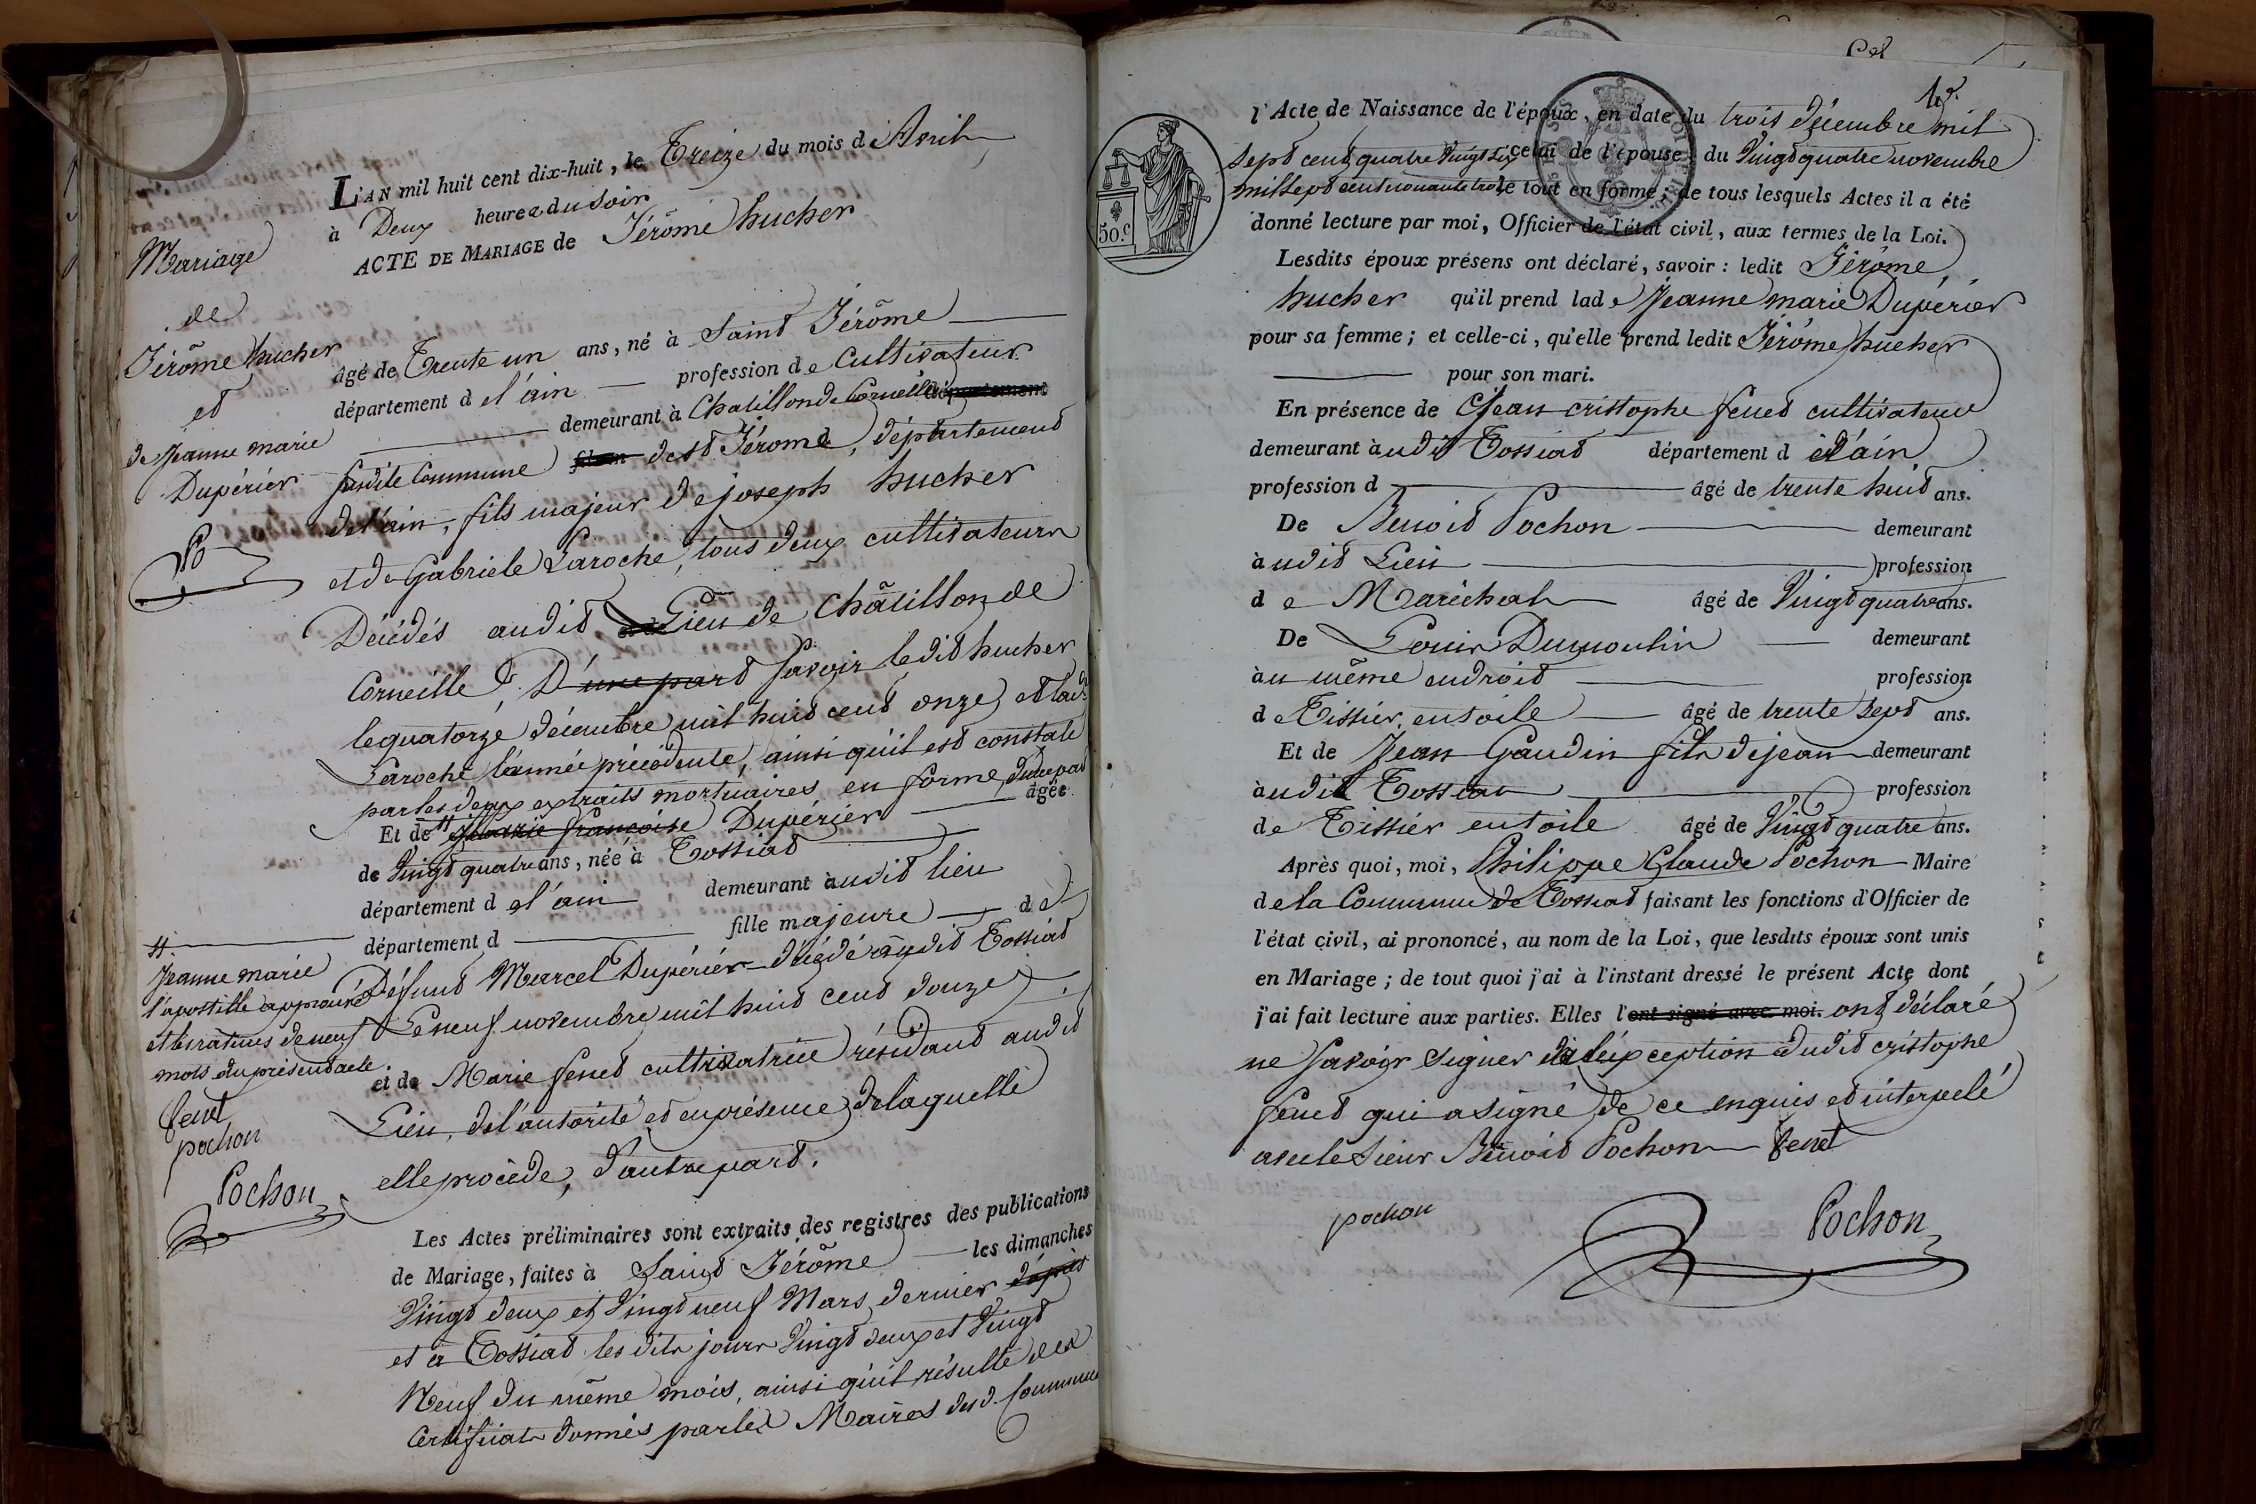 L'AN mil huit cent dix-huit, le Treize du mois d'Avril
à Deux heures du Soir
ACTE DE MARIAGE de Jérôme hucher
Mariage
de
Jérôme hucher
et
de Jeanne marie
Dupérier
âgé de Trente un ans, né à Saint Jérôme
département de l'ain profession de Cultivateur
demeurant à Chatillon de Corneille département
susdite Commune de St Jérome, département
de l'ain, fils majeur de joseph hucher
et de Gabriele Laroche, tous deux cultivateurs
Décédés audit Lieu de Châtillon de
Corneille D'une part Savoir ledit hucher
le quatorze décembre mil huit cent onze, et lad.
Laroche l'année précédente, ainsi qu'il est constaté
par les deux extraits mortuaires en forme, d'une part
Et de Marie françoise Dupérier âgée
de Vingt quatre ans, née à Tossiat
département de l'ain demeurant audit lieu
département d fille majeure de
Jeanne marie
l'apostille approuvé
et les ratures de neuf
mots du présent acte
fenet
pochon
Pochon
Défunt Marcel Dupérier décédé audit Tossiat
Le neuf novembre mil huit cent douze
et de Marie fenet cultivatrice résidant audit
Lieu, de l'autorité et en présence de laquelle
elle procède, d'autre part.
Les Actes préliminaires sont extraits des registres des publications
de Mariage, faites à Saint Jérôme les dimanches
Vingt deux et Vingt neuf Mars dernier d'après
et à Tossiat les dits jours Vingt deux et Vingt
Neuf du même mois, ainsi qu'il résulte des
Certificats donnés par les Maires desd. Communes
l'Acte de Naissance de l'époux, en date du trois décembre mil
sept cent quatre Vingt six celui de l'épouse du Vingt quatre novembre
mil sept cent nonante trois le tout en forme; de tous lesquels Actes il a été
donné lecture par moi, Officier de l'état civil, aux termes de la Loi.
50.c
Lesdits époux présens ont déclaré, savoir: ledit Jérôme
hucher qu'il prend lade Jeanne marie Dupérier
pour sa femme; et celle-ci, qu'elle prend ledit Jérôme hucher
pour son mari.
En présence de Jean cristophe fenet cultivateur
demeurant audit Tossiat département de l'ain
profession d âgé de trente huit ans.
De Benoit Pochon demeurant
audit Lieu profession
de Maréchal âgé de Vingt quatre ans.
De Louis Dumoulin demeurant
au même endroit profession
de Tissier en toile âgé de trente sept ans.
Et de Jean Gaudin fils de jean demeurant
audit Tossiat profession
de Tissier en toile âgé de Vingt quatre ans.
Après quoi, moi, Philippe Claude Pochon Maire
de la Commune de Tossiat faisant les fonctions d'Officier de
l'état civil, ai prononcé, au nom de la Loi, que lesdits époux sont unis
en Mariage; de tout quoi j'ai à l'instant dressé le présent Acte dont
j'ai fait lecture aux parties. Elles l'ont signé avec moi. ont déclaré
ne savoir signer à l'exception dudit cristophe
fenet qui a signé de ce enquis et interpelé
avec le Sieur Benoit Pochon fenet
pochon
Pochon